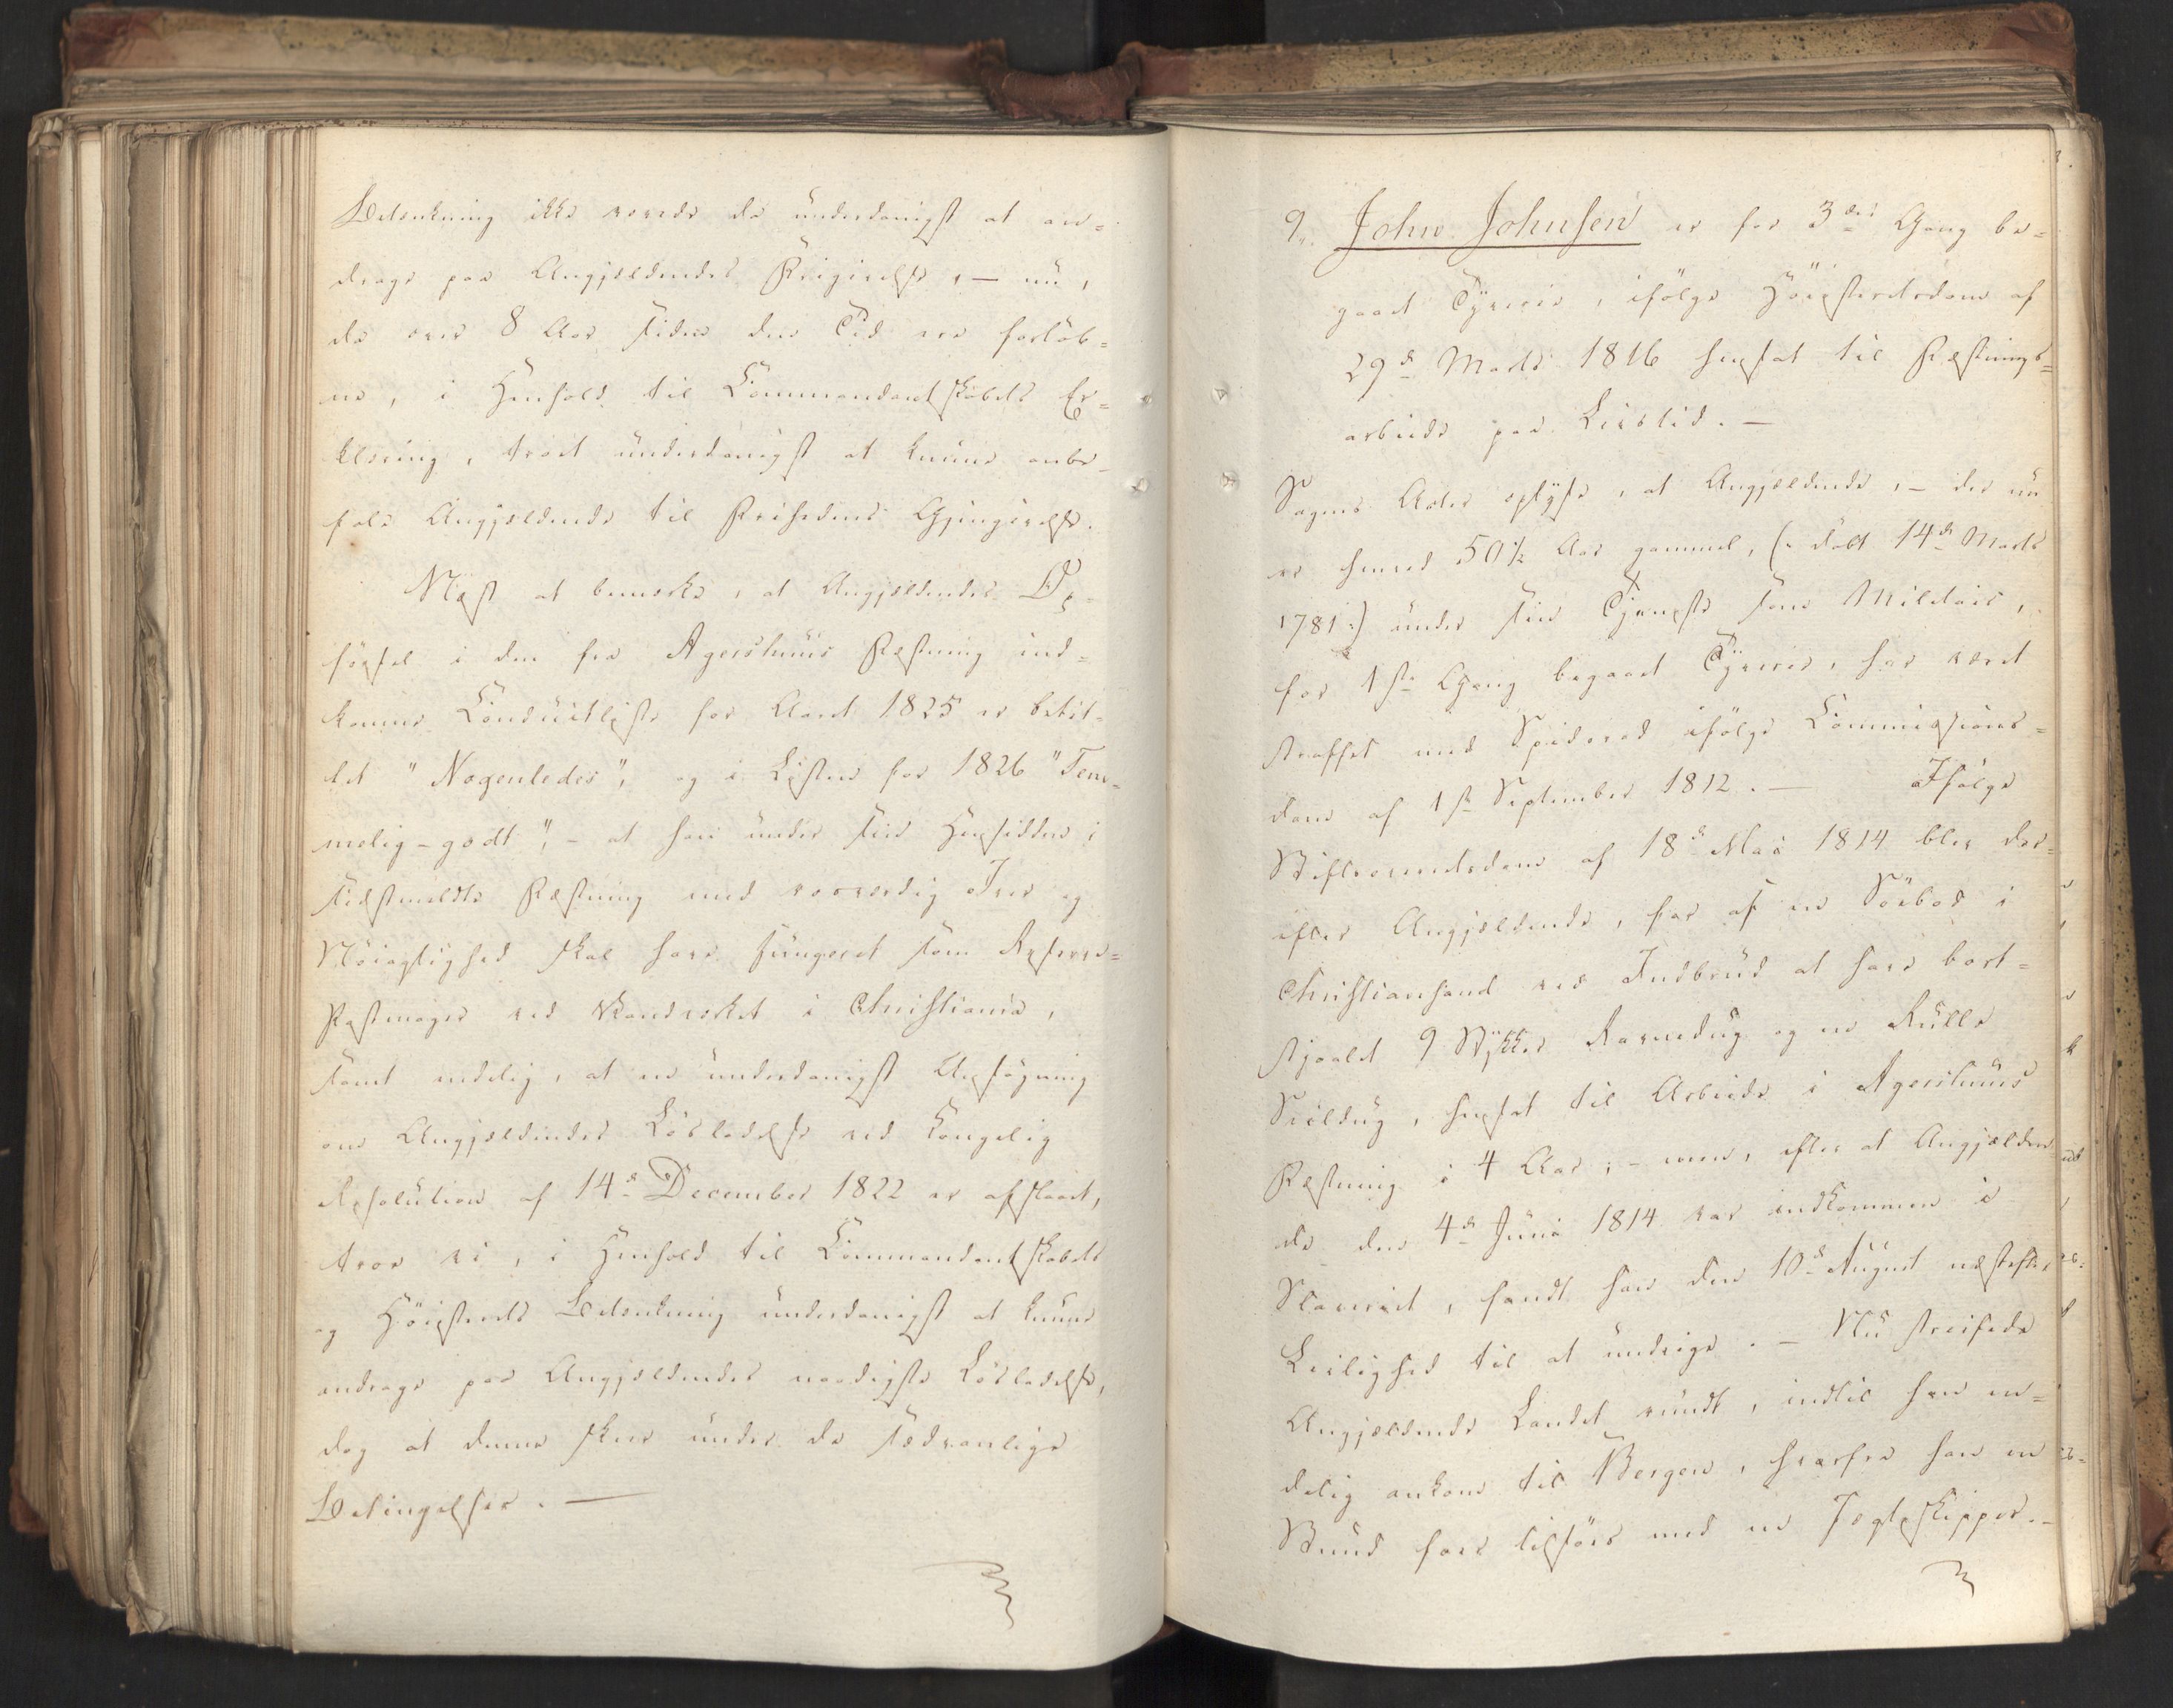 Betænkning ikke vovede da underdanigst at an=
drage paa Angjældendes Frigivelse, — nu,
da over 8 Aar siden den Tid ere forløb=
ne, i Henhold til Commandantskabets Er=
klæring, troet underdanigst at kunne anbe=
fale Angjældende til Friehedens Gjengivelse.
Næst at bemærke, at Angjældendes Op=
førsel i den fra Agershuus Fæstning ind=
komne Conduitliste for Aaret 1825 er betit=
let "Nogenledes", og i Listen for 1826 "Tem=
melig-godt", - at han under sin Henfidden i
sidstmeldte Fæstning med roesværdig Iver og
Nøiagtighed skal have fungeret som Reserve=
Postmager ved Vandværket i Christiania,
samt endelig, at en underdanigst Ansøgning
om Angjældendes Løsladelse ved Kongelig
Resolution af 14de December 1822 er afslaaet,
troe vi, i Henhold til Commandantskabets
og Høiesterets Betænkning underdanigst at kunne
andrage paa Angjældendes naadigste Løsladelse,
dog at denne skeer under de sædvanlige
Betingelser. —
9. John Johnsen er for 3die Gang be=
gaaet Tyverie, ifølge Høiesteretsdom af
29de Marts 1816 hensat til Fæstnings=
arbeide paa Livstid. —
Sagens Acter oplyse, at Angjældende, - der nu
er henved 50½ Aar gammel, (: døbt 14de Marts
1781:) under sin Tjeneste som Militair,
for 1ste Gang begaaet Tyverie, har været
straffet med Spidsrod ifølge Commissions=
dom af 1ste September 1812. — Ifølge
Stiftsoverretsdom af 18de Mai 1814 blev der=
efter Angjældende, for af en Søebod i
Christiansand ved Indbrud at have bort=
stjaalet 9 Stykker Ravnedug og en Rulle
Seildug, hensat til Arbeide i Agershuus
Fæstning i 4 Aar; - men, efter at Angjælden=
de den 4de Juni 1814 var indkommen i
Slaveriet, fandt han den 10de August næstefter
Leilighed til at undvige. — Nu streifede
Angjældende Landet rundt, indtil han en=
delig ankom til Bergen, hvorfra han en
Stund foer tilsøes med en Jægteskipper. -